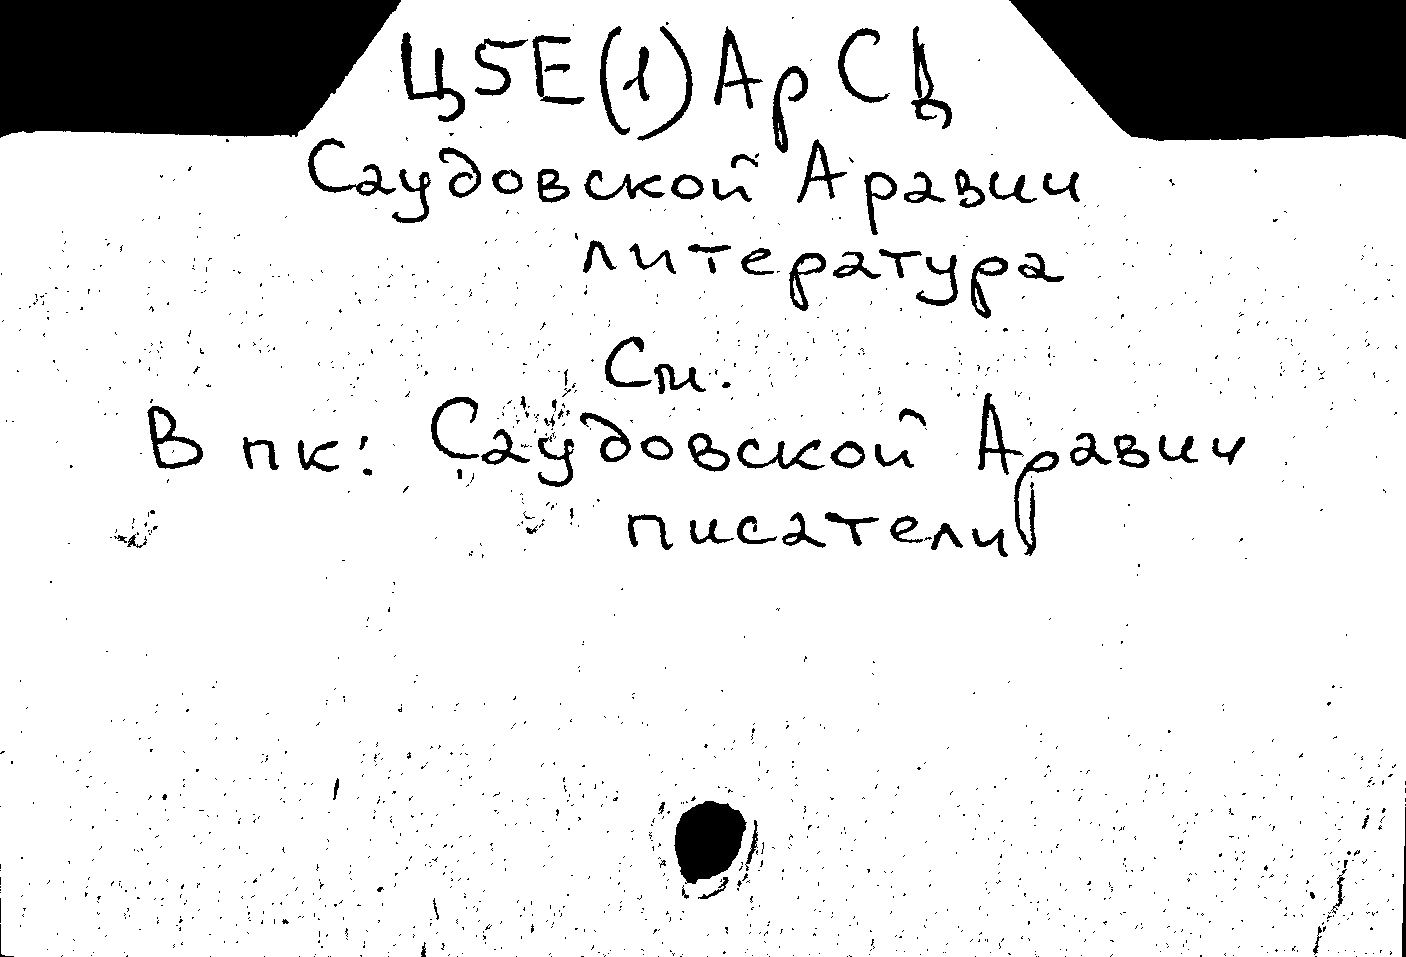 Ц5Е(1)Ар Св
Саудовской Аравии
литература
См.
В пк: Саудовской Аравии
писатели